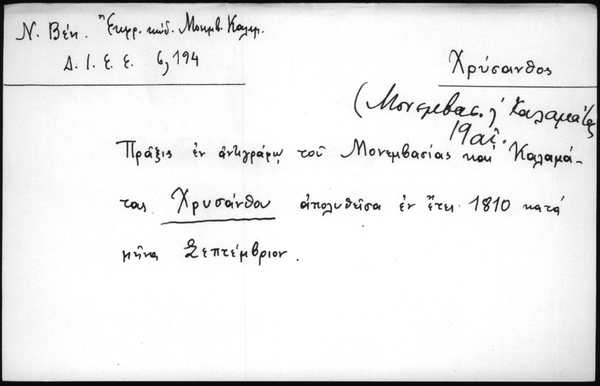 Ν. Βέη. Ἔκφρ. κώδ. Μονμβ. Καλαμ.
Δ. Ι. Ε. Ε. 6, 194
Χρύσανθος
(Μονεμβασ. ϟ Καλαμάτας
19 αἰ.
Πρᾶξις ἐν ἀντιγράφῳ τοῦ Μονεμβασίας καὶ Καλαμά-
τας Χρυσάνθου ἀπολυθεῖσα ἐν ἔτει 1810 κατά
μῆνα Σεπτέμβριον.